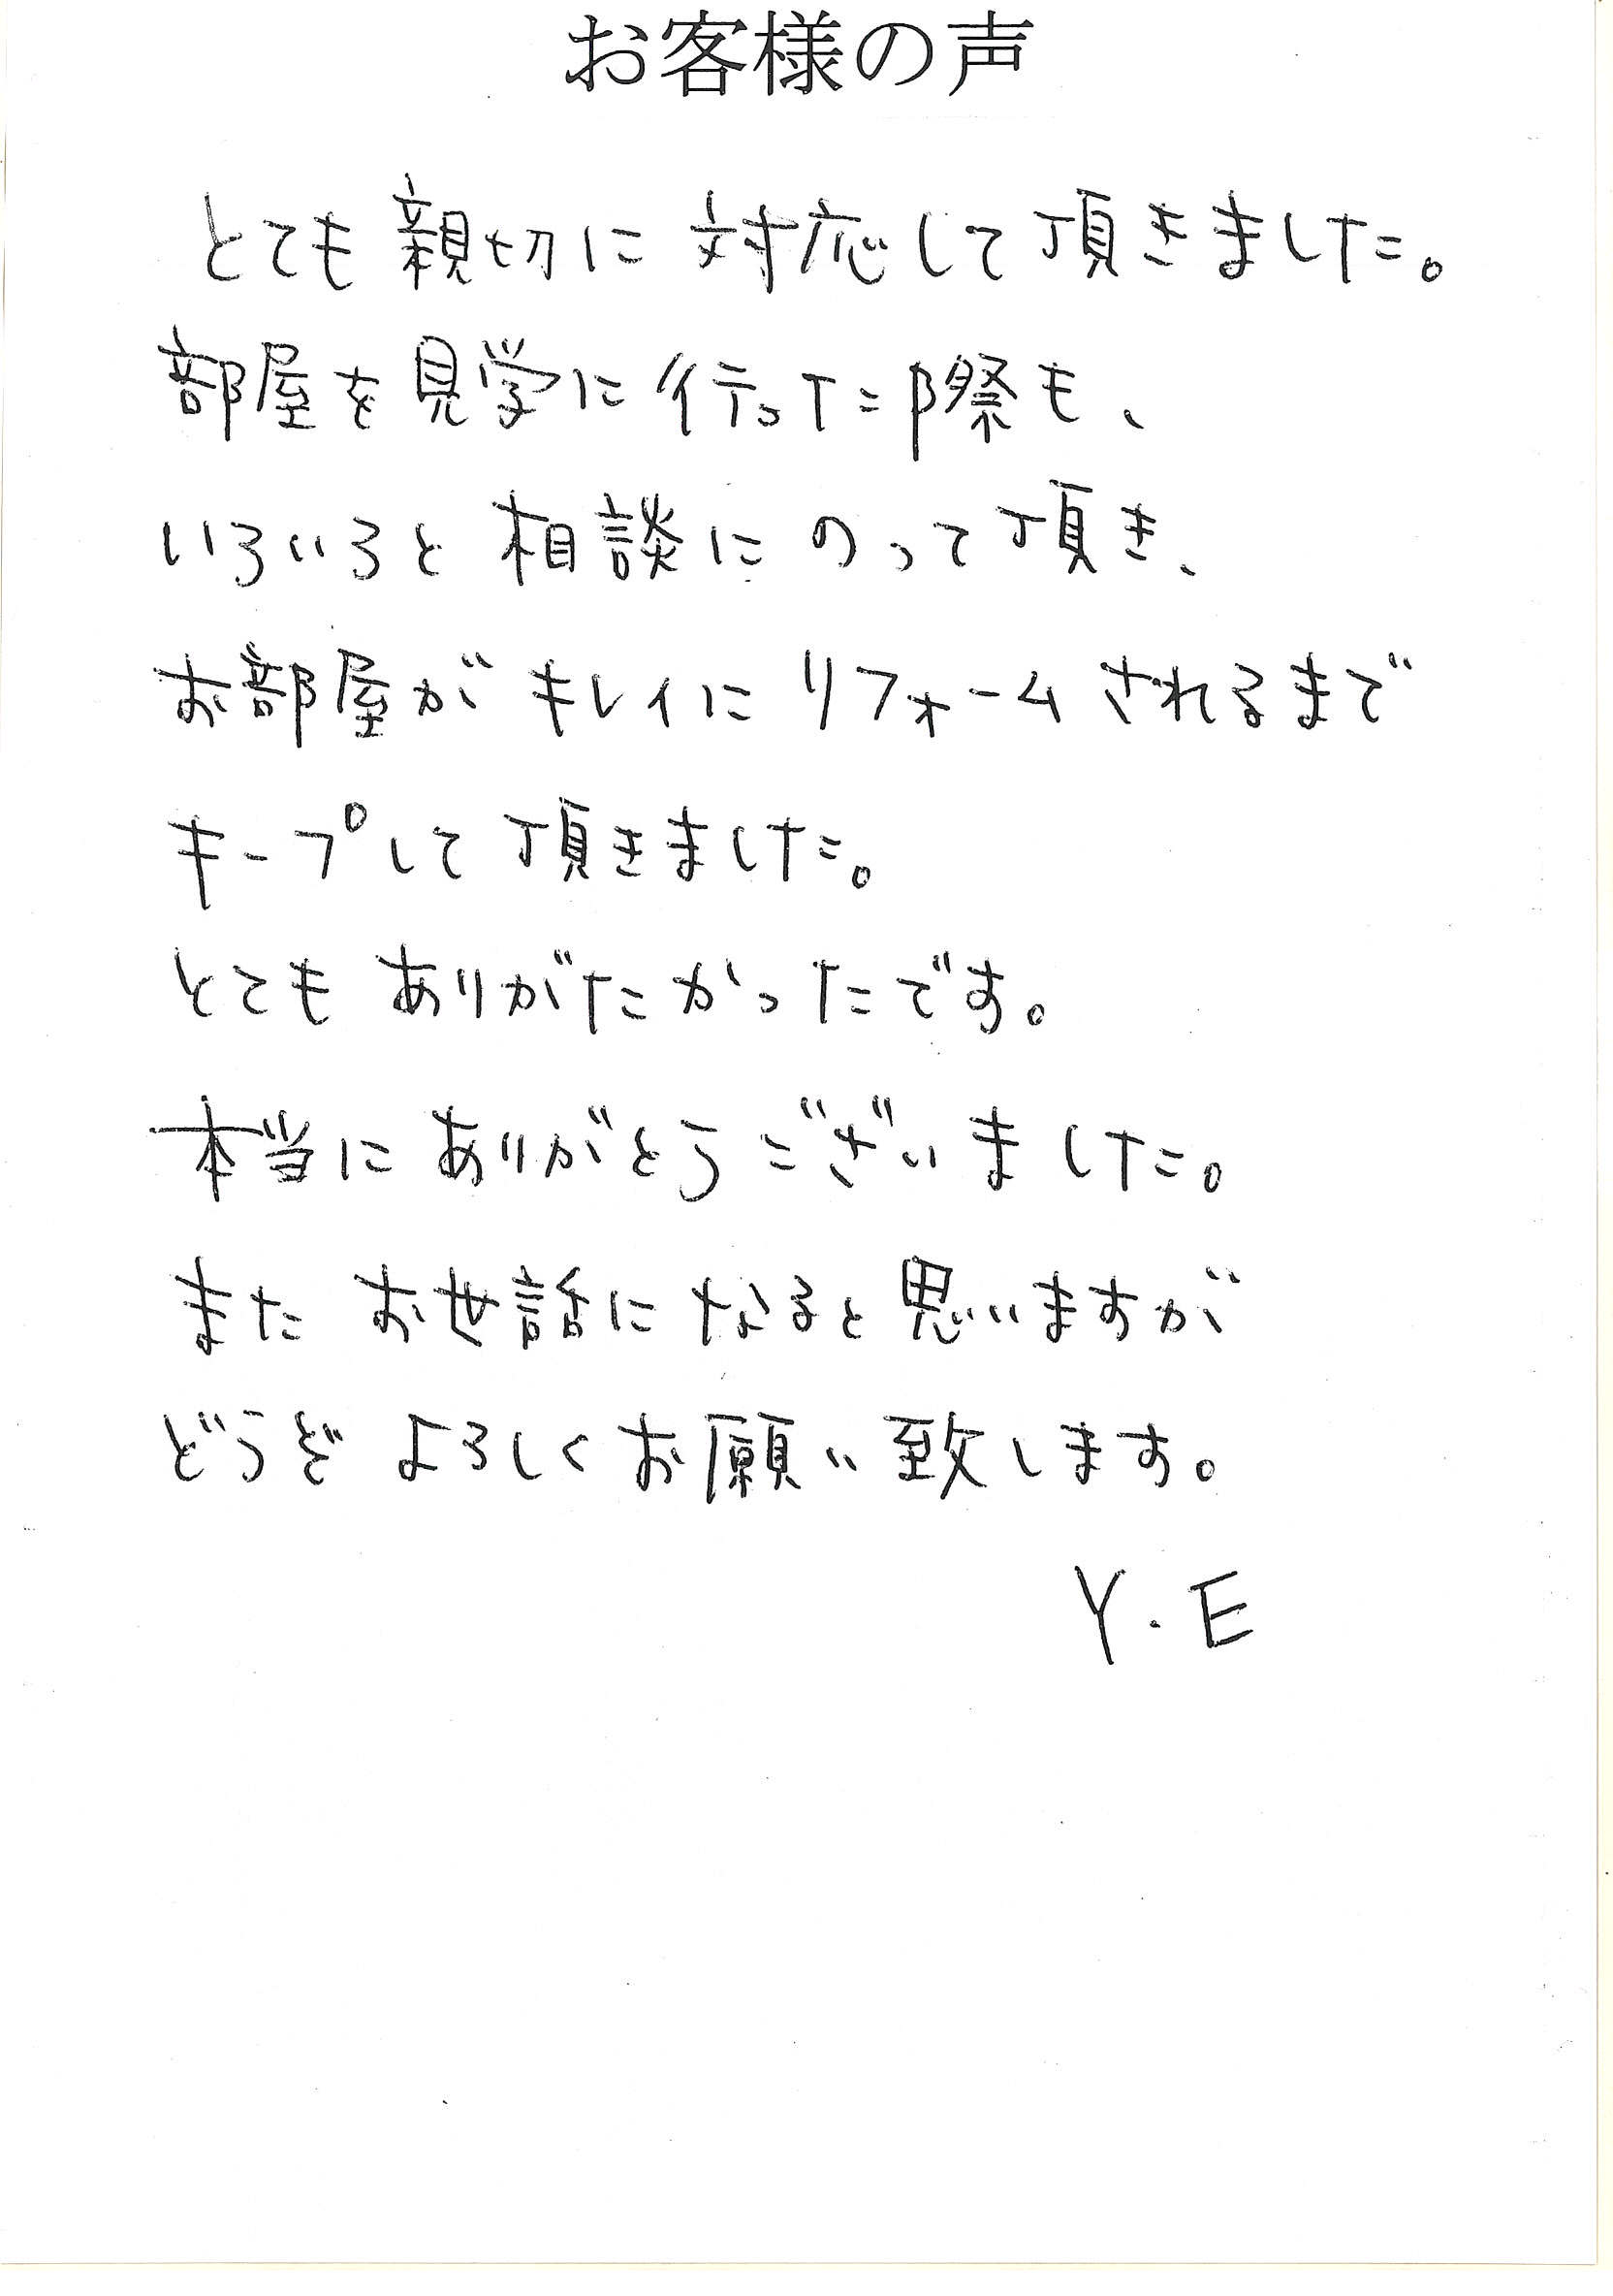 お客様の声
とても親切に対応して頂きました。
部屋を見学に行った際も、
いろいろと相談にのって頂き、
お部屋がキレイにリフォームされるまで
キープして頂きました。
とてもありがたかったです。
本当にありがとうございました。
またお世話になると思いますが
どうぞよろしくお願い致します。
Y.E